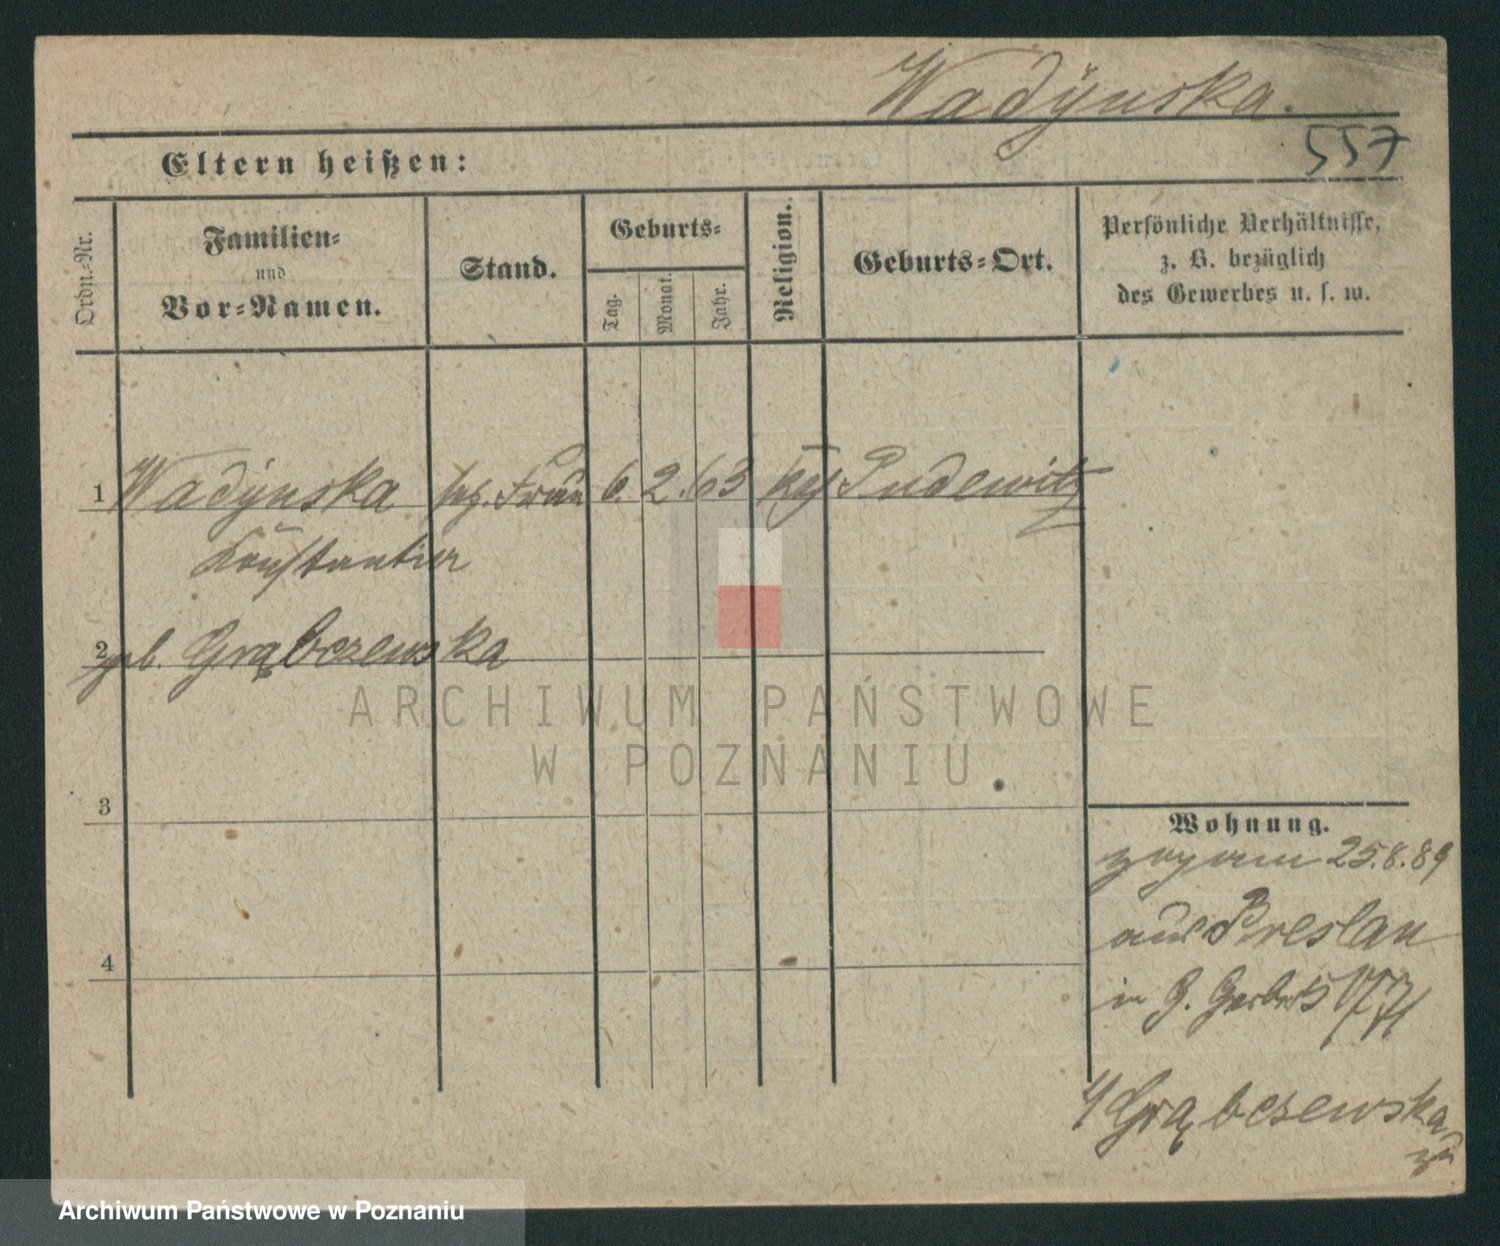 Wadynska.
557
Eltern heißen:
Ordn.-Nr.
Familien-
und
Vor-Namen.
Stand.
Geburts-
Tag.
Monat.
Jahr.
Religion.
Geburts-Ort.
Persönliche Verhältnisse,
z. B. bezüglich
des Gewerbes u. s. w.
1 Wadynska Frau 6. 2. 63 Pudewitz
Konstantin
2 geb. Grąbczewska
3
4
Wohnung.
25.8.89
aus Breslau
in G.
Grąbczewska
zu
ARCHIWUM PAŃSTWOWE
W POZNANIU
Archiwum Państwowe w Poznaniu